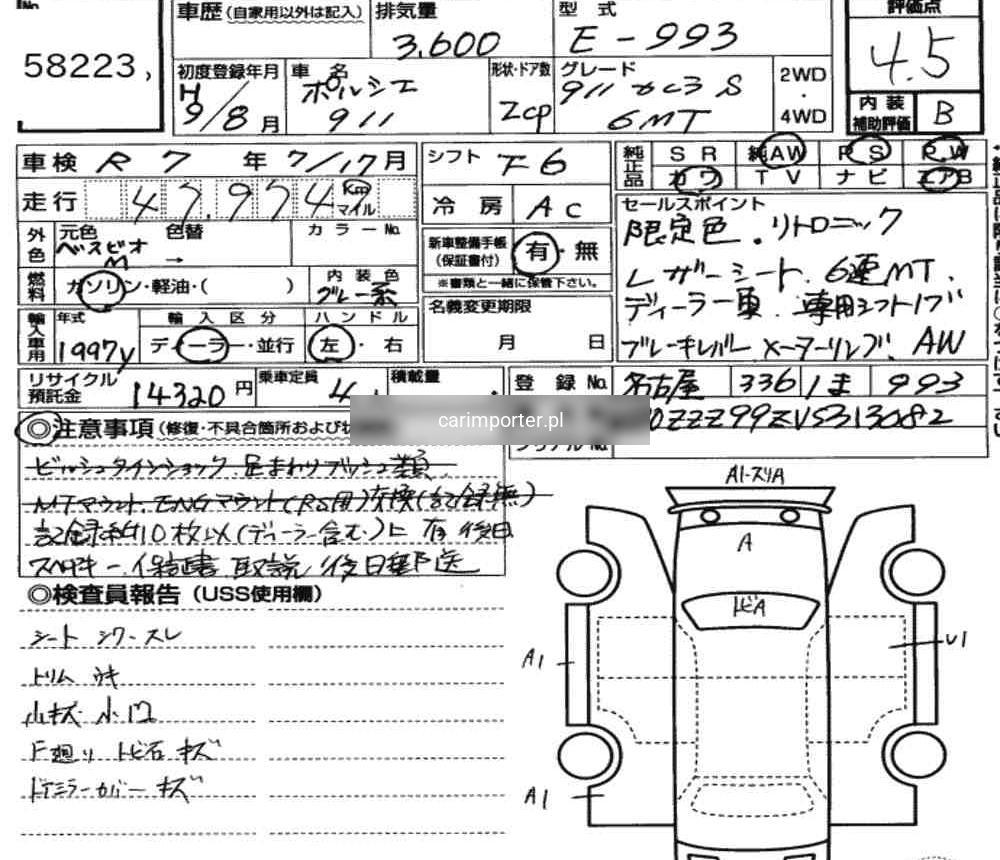 No.
58223,
車歴(自家用以外は記入)
排気量
3.600
型式
E-993
評価点
4.5
初度登録年月
H
9/8月
車名
ポルシェ
911
形状・ドア数
2cp
グレード
911 カレラ S
6MT
2WD
・
4WD
内装
補助評価
B
車検 R 7 年 7/17月
シフト F6
純正品
SR 純AW PS P.W
カワ TV ナビ エアB
走行 47,974 Km
マイル
冷房 AC
セールスポイント
限定色.リトロニック
レザーシート.6速MT.
ディーラー車.専用シフトノブ
ブレーキレバー メーターリング.AW
外色
元色 色替
カラーNo.
ベスビオ
M →
新車整備手帳
(保証書付)
有・無
※書類と一緒に保管下さい。
燃料
ガソリン・軽油・( )
内装色
グレー系
名義変更期限
月 日
輸入車用
年式
1997y
輸入区分
ディーラー・並行
ハンドル
左・右
リサイクル
預託金
14320円
乗車定員
4
積載量
登録No.
名古屋 336 ま 993
carimporter.pl
0ZZZ99ZVS313082
◎注意事項(修復・不具合箇所および
ビルシュタインショック.足まわりブッシュ類
MTマウント.ENGマウント(RS用)交換(記録無)
記録約10枚以(ディーラー含む)に有 後日
スペアキー.保証書.取説 後日郵送
◎検査員報告(USS使用欄)
シート シワ・スレ
トリム ウキ
小キズ・小凹
F廻り トビ石 キズ
ドアミラーカバー キズ
A1-スリA
A
トビA
A1
U1
A1